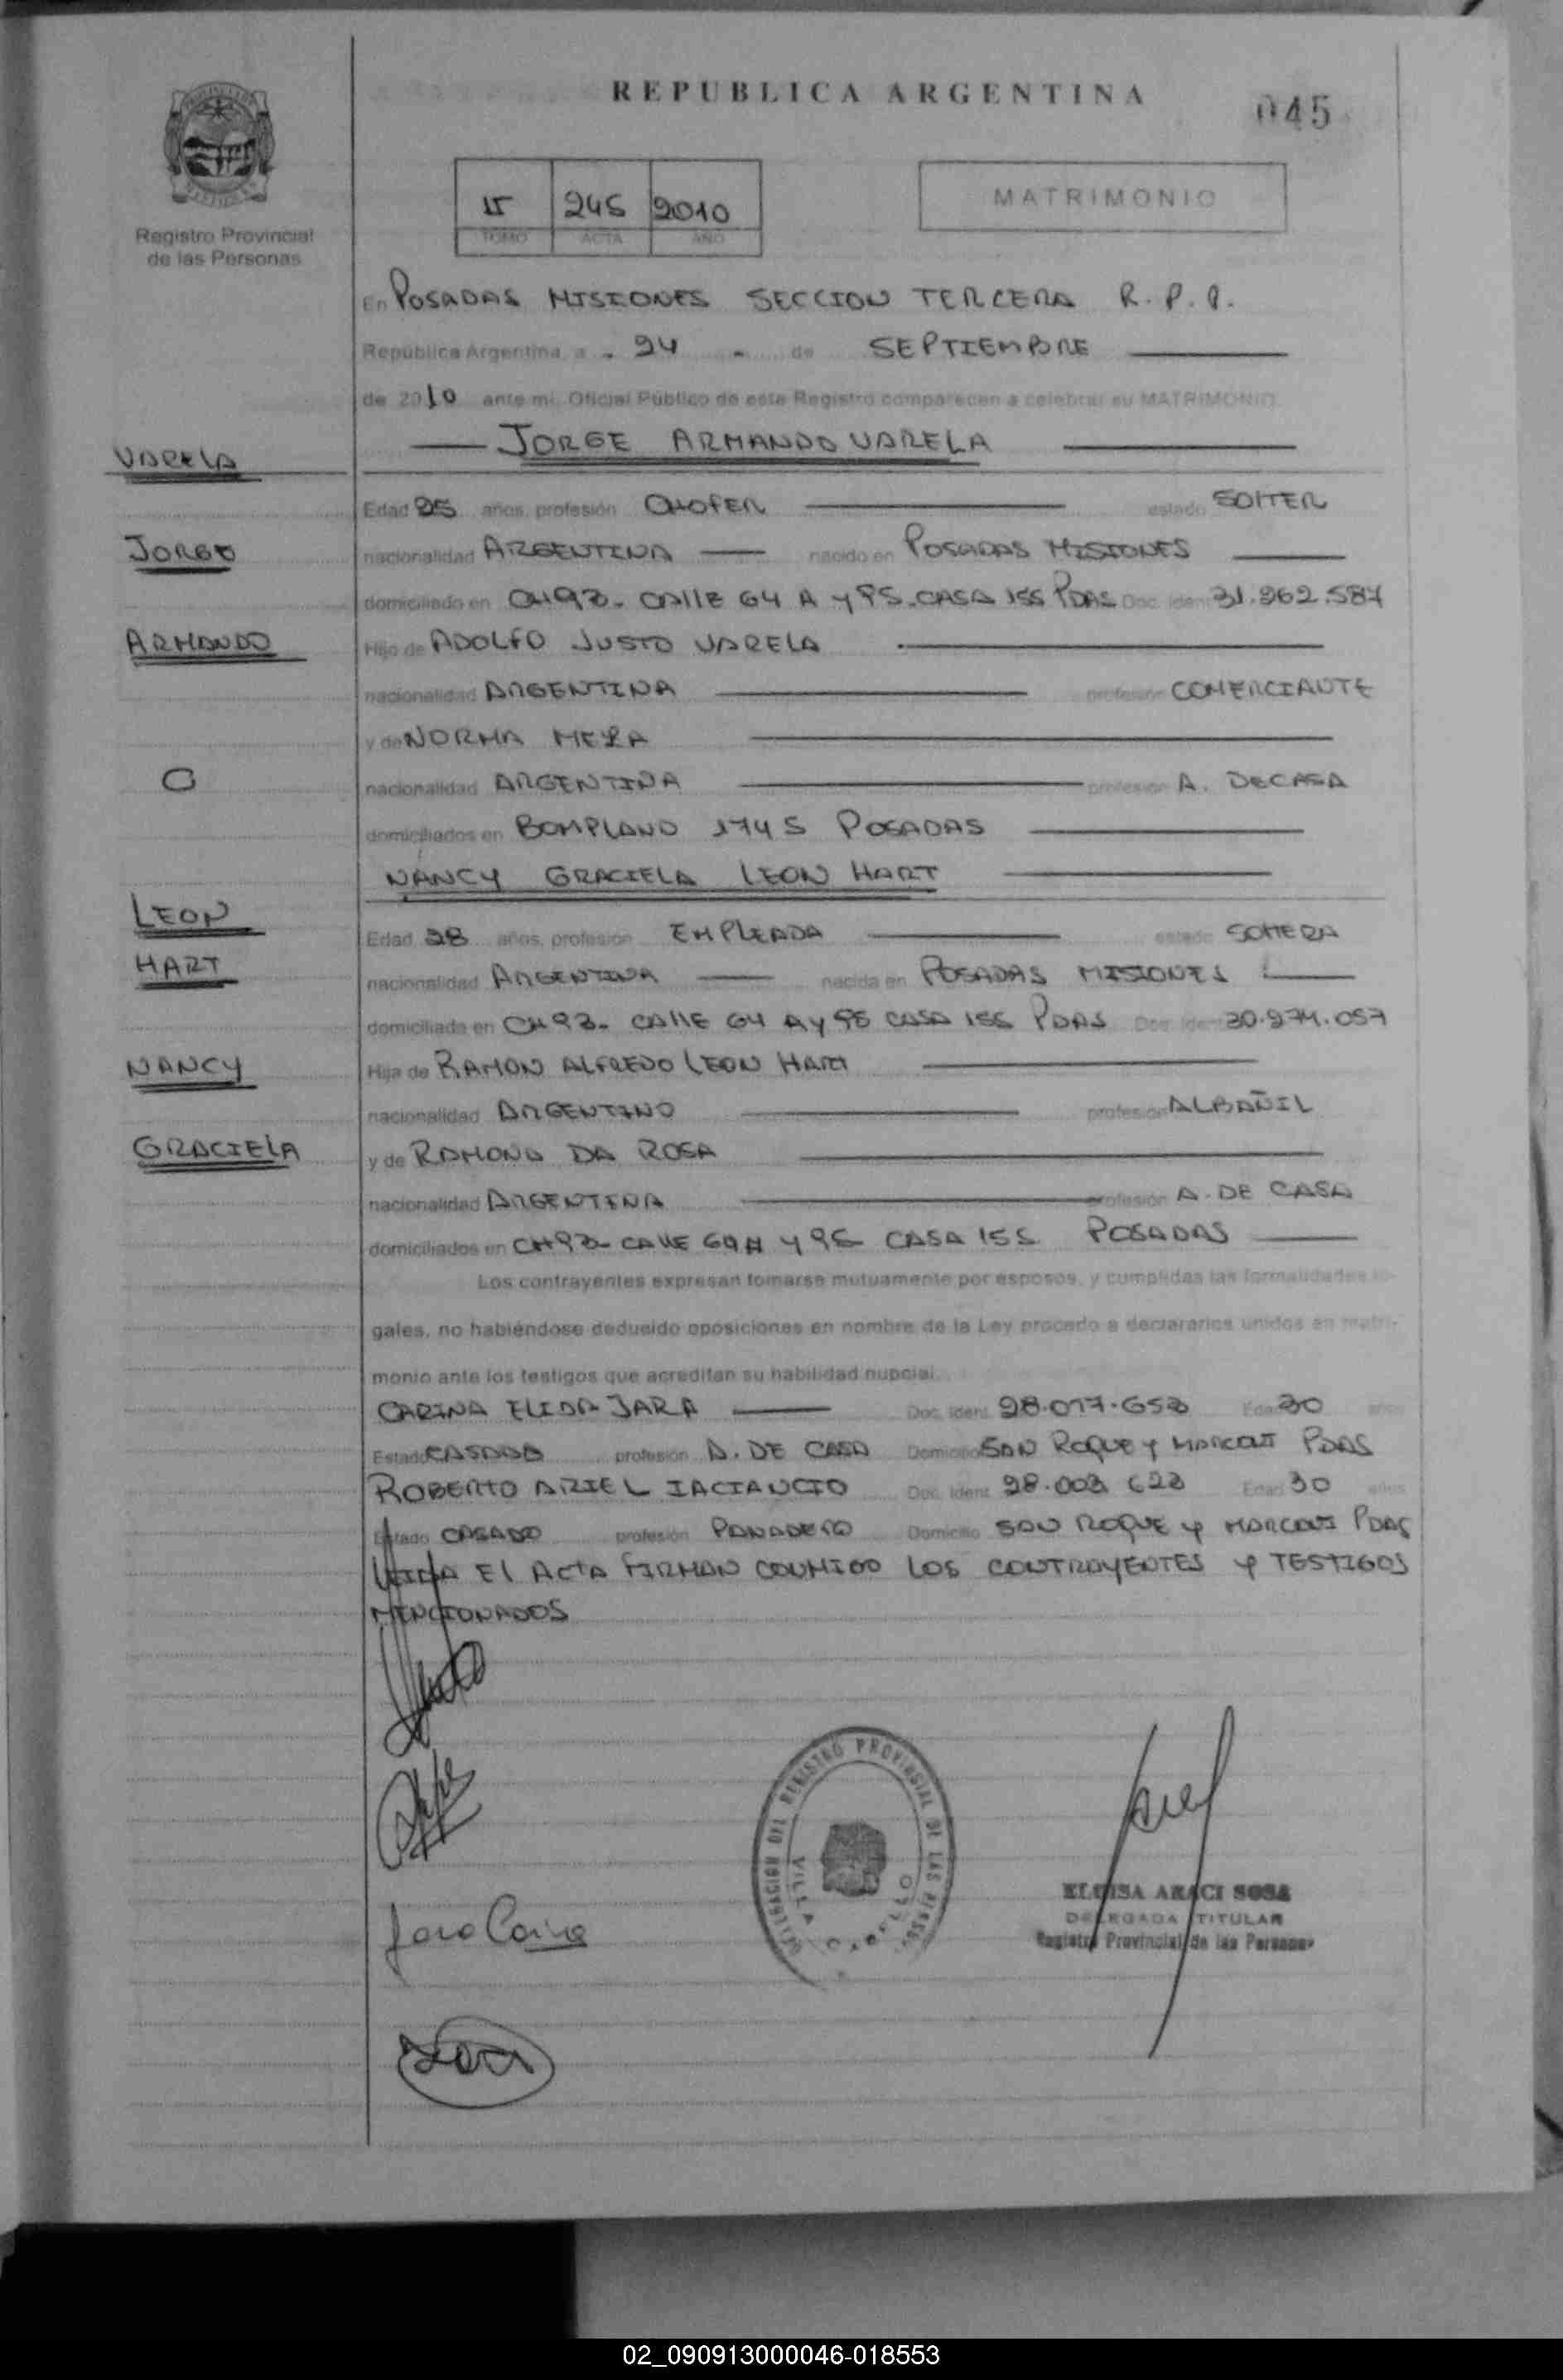 REPUBLICA ARGENTINA
045
MATRIMONIO
II 245 2010
TOMO ACTA AÑO
Registro Provincial
de las Personas
En POSADAS MISIONES SECCION TERCERA R.P.P.
República Argentina, a - 24 - de SEPTIEMBRE
de 2010 ante mi, Oficial Público de este Registro comparecen a celebrar su MATRIMONIO
JORGE ARMANDO VARELA
VARELA
Edad 25 años, profesión CHOFER estado SOLTER
JORGE
nacionalidad ARGENTINA nacido en POSADAS MISIONES
domiciliado en CH93- CALLE 64 A y 95-CASA 155 PDAS Doc. Iden 31.962.584
ARMANDO
Hijo de ADOLFO JUSTO VARELA
nacionalidad ARGENTINA profesión COMERCIANTE
y de NORMA MEZA
C
nacionalidad ARGENTINA profesión A. DECASA
domiciliados en BOMPLAND 1745 POSADAS
NANCY GRACIELA LEON HART
LEON
Edad 28 años, profesión EMPLEADA estado SOLTERA
HART
nacionalidad ARGENTINA nacida en POSADAS MISIONES
domiciliada en CH93- CALLE 64 A y 95 CASA 155 PDAS Doc Iden 30.974.057
NANCY
Hija de RAMON ALFREDO LEON HART
nacionalidad ARGENTINO profesion ALBAÑIL
GRACIELA
y de RAMONA DA ROSA
nacionalidad ARGENTINA profesión A. DE CASA
domiciliados en CH93- CALLE 64A y 95 CASA 155 POSADAS
Los contrayentes expresan tomarse mutuamente por esposos, y cumplidas las formalidades le-
gales, no habiéndose deducido oposiciones en nombre de la Ley procedo a declararlos unidos en matri-
monio ante los testigos que acreditan su habilidad nupcial.
CARINA ELIDA JARA Doc. Ident. 28.077.653 Edad 30 años
Estado CASADA profesión A. DE CASA Domicilio SAN ROQUE y MARCONI PDAS
ROBERTO ARIEL IACIANCIO Doc. Ident. 28.003 623 Edad 30 años
Estado CASADO profesión PANADERO Domicilio SAN ROQUE y MARCONI PDAS
LEIDA El ACTA FIRMAN CONMIGO LOS CONTRAYENTES y TESTIGOS
MENCIONADOS
Jara Carina
DELEGACION DEL REGISTRO PROVINCIAL DE LAS PERSONAS
VILLA CABELLO
ELOISA ARACI SOSA
DELEGADA TITULAR
Registro Provincial de las Personas
02_090913000046-018553